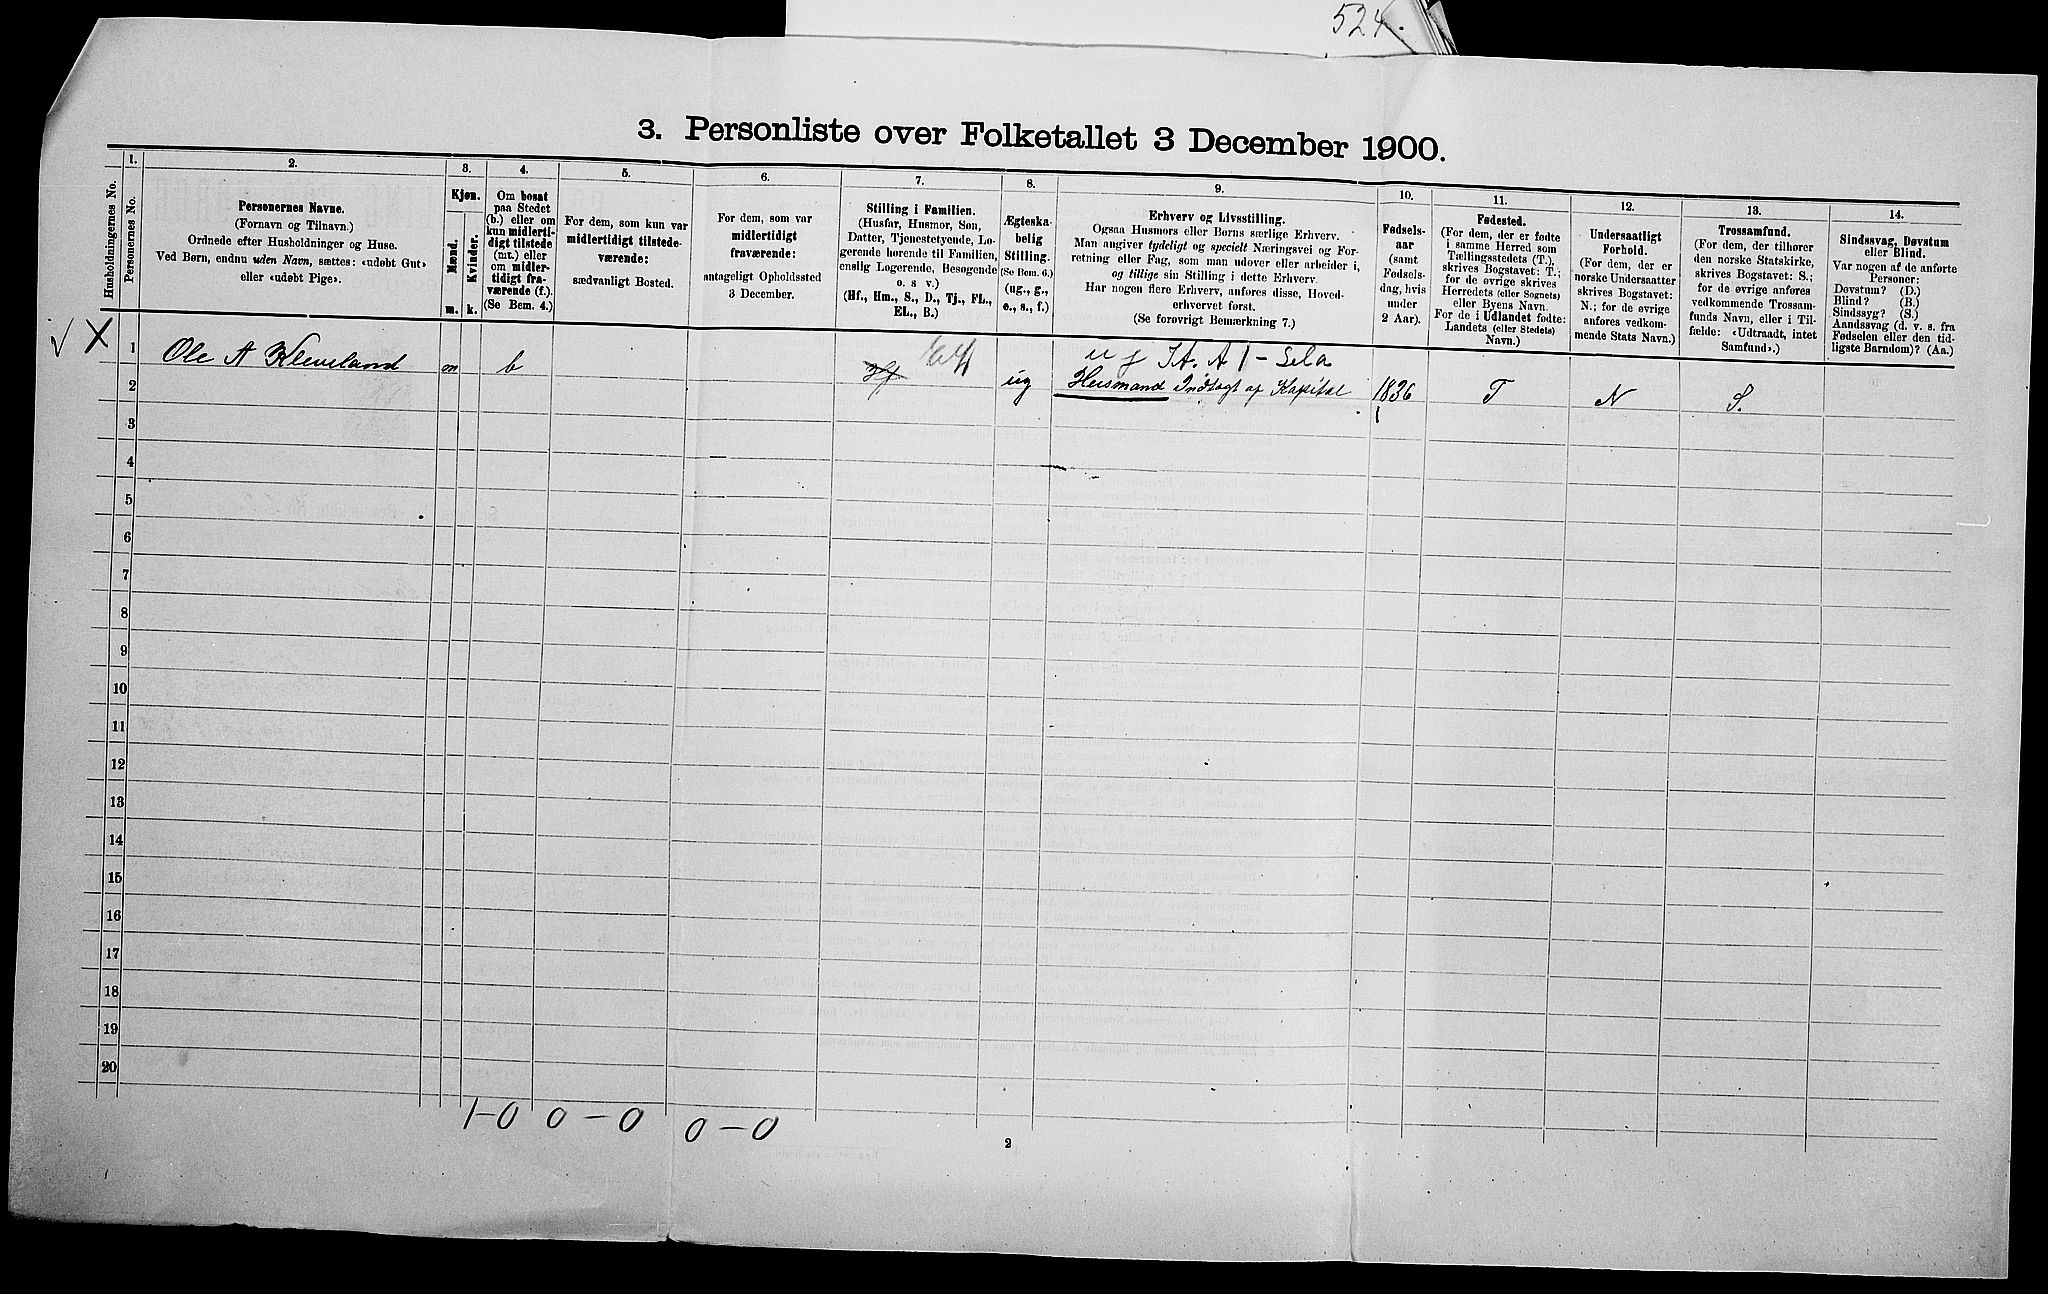 524.
3. Personliste over Folketallet 3 December 1900.
Husholdningernes No.
1.
Personernes No.
2.
Personernes Navne.
(Fornavn og Tilnavn.)
Ordnede efter Husholdninger og Huse.
Ved Børn, endnu uden Navn, sættes: «udøbt Gut»
eller «udøbt Pige».
3.
Kjøn.
Mænd.
Kvinder.
m. k.
4.
Om bosat
paa Stedet
(b.) eller om
kun midlerti-
digt tilstede
(mt.) eller
om midler-
tidigt fra-
værende (f.).
(Se Bem. 4.)
5.
For dem, som kun var
midlertidigt tilstede-
værende:
sædvanligt Bosted.
6.
For dem, som var
midlertidigt
fraværende:
antageligt Opholdssted
3 December.
7.
Stilling i Familien.
(Husfar, Husmor, Søn,
Datter, Tjenestetyende, Lo-
gerende hørende til Familien,
enslig Logerende, Besøgende
o. s v.)
(Hf., Hm., S., D., Tj., FL.,
EL., B.)
8.
Ægteska-
belig
Stilling.
(Se Bem. 6.)
(ug., g.,
e., s., f.)
9.
Erhverv og Livsstilling.
Ogsaa Husmors eller Børns særlige Erhverv.
Man angiver tydeligt og specielt Næringsvei og For-
retning eller Fag, som man udøver eller arbeider i,
og tillige sin Stilling i dette Erhverv.
Har nogen flere Erhverv, anføres disse, Hoved-
erhvervet først.
(Se forøvrigt Bemærkning 7.)
10.
Fødsels-
aar
(samt
Fødsels-
dag, hvis
under
2 Aar).
11.
Fødested.
(For dem, der er fødte
i samme Herred som
Tællingsstedets (T.),
skrives Bogstavet: T.;
for de øvrige skrives
Herredets (eller Sognets)
eller Byens Navn.
For de i Udlandet fødte:
Landets (eller Stedets)
Navn.)
12.
Undersaatligt
Forhold.
(For dem, der er
norske Undersaatter
skrives Bogstavet:
N.; for de øvrige
anføres vedkom-
mende Stats Navn.)
13.
Trossamfund.
(For dem, der tilhører
den norske Statskirke,
skrives Bogstavet: S.;
for de øvrige anføres
vedkommende Trossam-
funds Navn, eller i Til-
fælde: «Udtraadt, intet
Samfund».)
14.
Sindssvag, Døvstum
eller Blind.
Var nogen af de anførte
Personer:
Døvstum? (D.)
Blind? (B.)
Sindssyg? (S.)
Aandssvag (d. v. s. fra
Fødselen eller den tid-
ligste Barndom)? (Aa.)
√ X
1 Ole A Kleveland m b Hf ug Husmand Indtægt af Kapital 1836 T N S.
2
3
4
5
6
7
8
9
10
11
12
13
14
15
16
17
18
19
20
1-0 0-0 0-0
2